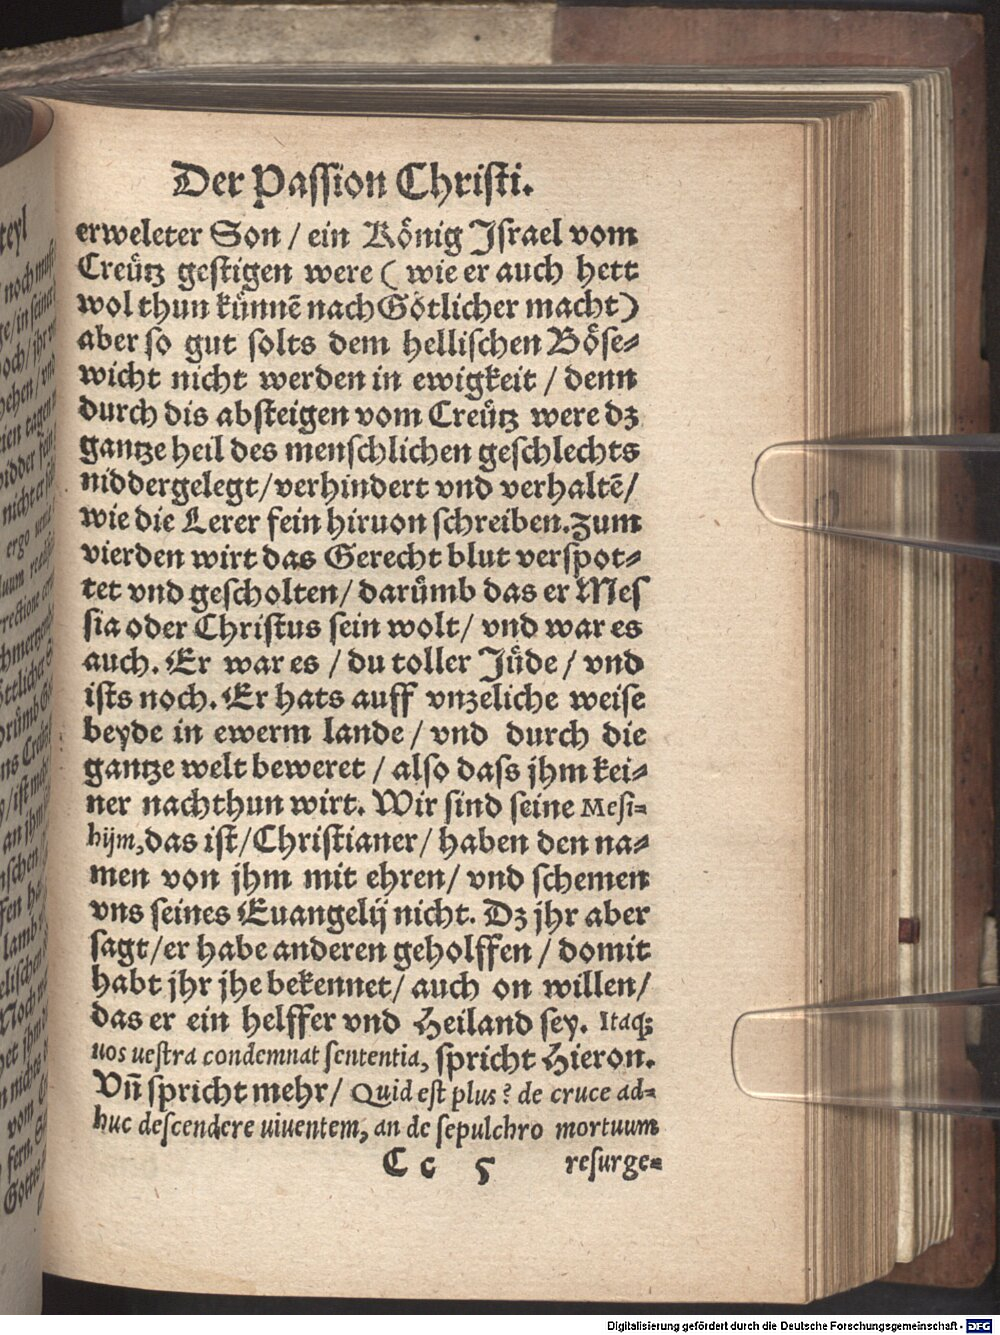 Der Passion Christi.
erweleter Son / ein Kōnig Jsrael vom
Creütz gestigen were ( wie er auch hett
wol thun künnē nach Götlicher macht)
aber so gut solts dem hellischen Böse⸗
wicht nicht werden in ewigkeit / denn
durch dis absteigen vom Creütz were dz
gantze heil des menschlichen geschlechts
niddergelegt/verhindert vnd verhaltē/
wie die Lerer fein hiruon schreiben. Zum
vierden wirt das Gerecht blut verspot⸗
tet vnd gescholten/ darümb das er Mes
sia oder Christus sein wolt/ vnd war es
auch. Er war es / du toller Jüde / vnd
ists noch. Er hats auff vnzeliche weise
beyde in ewerm lande / vnd durch die
gantze welt beweret / also dass jhm kei⸗
ner nachthun wirt. Wir sind seine Mesi⸗
hijm, das ist/Christianer/ haben den na⸗
men von jhm mit ehren/ vnd schemen
vns seines Euangelij nicht. Dz jhr aber
sagt/er habe anderen geholffen / domit
habt jhr jhe bekennet/ auch on willen/
das er ein helffer vnd Heiland sey. Itaq;
uos uestra condemnat sententia, spricht Hieron.
Vñ spricht mehr/ Quid est plus? de cruce ad⸗
huc descendere uiuentem, an de sepulchro mortuum
Cc 5 resurge⸗
teyl
Digitalisierung gefördert durch die Deutsche Forschungsgemeinschaft - DFG